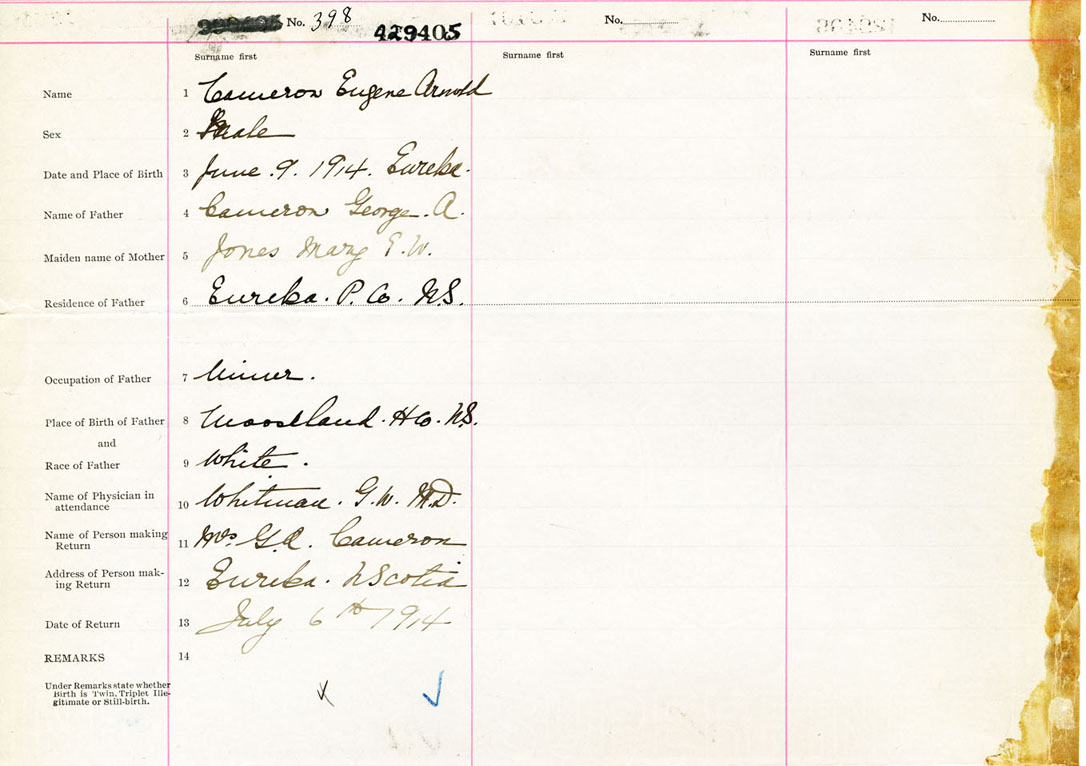 No. 398 429405 No. No.
Surname first Surname first Surname first
Name 1 Cameron Eugene Arnold
Sex 2 Male
Date and Place of Birth 3 June. 9. 1914. Eureka.
Name of Father 4 Cameron George. A.
Maiden name of Mother 5 Jones Mary E.W.
Residence of Father 6 Eureka. P. Co. N.S.
Occupation of Father 7 Miner.
Place of Birth of Father 8 Mooseland. H Co. N.S.
and
Race of Father 9 White.
Name of Physician in
attendance 10 Whitman. G.W. M.D.
Name of Person making
Return 11 Mrs G.A. Cameron
Address of Person mak-
ing Return 12 Eureka. N Scotia
Date of Return 13 July 6th 1914
REMARKS 14
Under Remarks state whether
Birth is Twin, Triplet Ille-
gitimate or Still-birth.